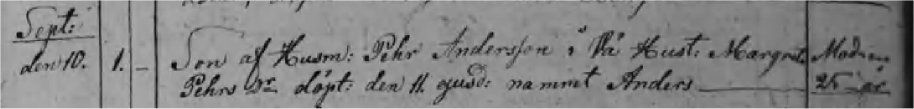 Sept:
den 10. 1. – Son af Husm: Pehr Andersson i Vå Hust: Margret Modrens
Pehrs Dr döpt: den 11. ejusd: namnet Anders 25 år